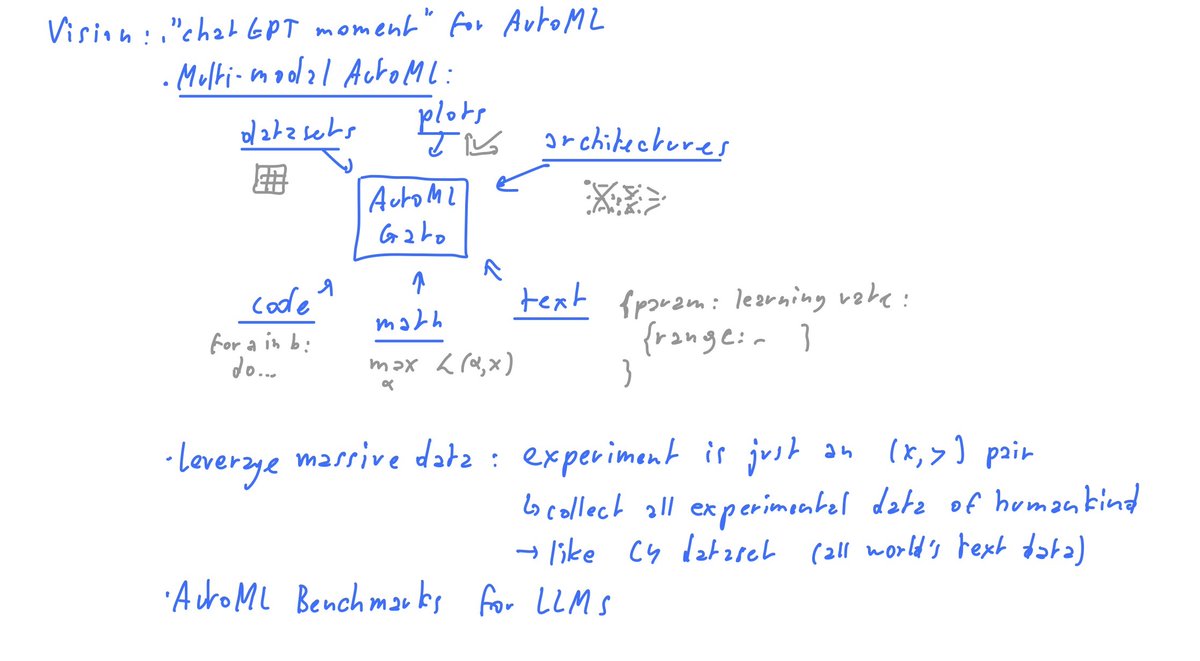 Vision: . "chat GPT moment" for AutoML
. Multi-modal AutoML:
datasets
plots
architectures
AutoML
Gato
code
math
text
{param: learning rate:
{range: - }
}
for a in b:
do...
max L(α,x)
α
· Leverage massive data : experiment is just an (x,y) pair
↳ collect all experimental data of humankind
→ like C4 dataset (all world's text data)
· AutoML Benchmarks for LLMs